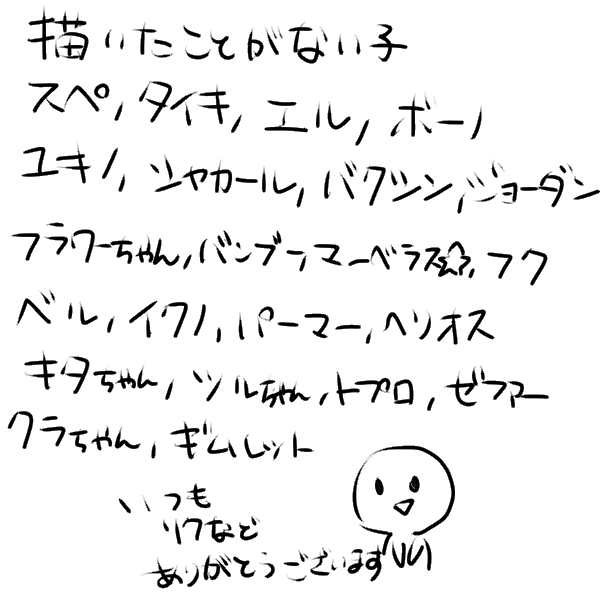 描いたことがない子
スペ,タイキ,エル,ボーノ
ユキノ,シャカール,バクシン,ジョーダン
フラワーちゃん,バンブー,マーベラス☆,フク
ベル,イクノ,パーマー,ヘリオス
キタちゃん,ツルちゃん,トプロ,ゼファー
クラちゃん,ギムレット
いつも
リクなど
ありがとうございます